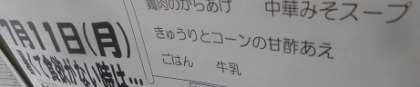 7月11日(月)
暑くて食欲がない時は…
鶏肉のからあげ 中華みそスープ
きゅうりとコーンの甘酢あえ
ごはん 牛乳